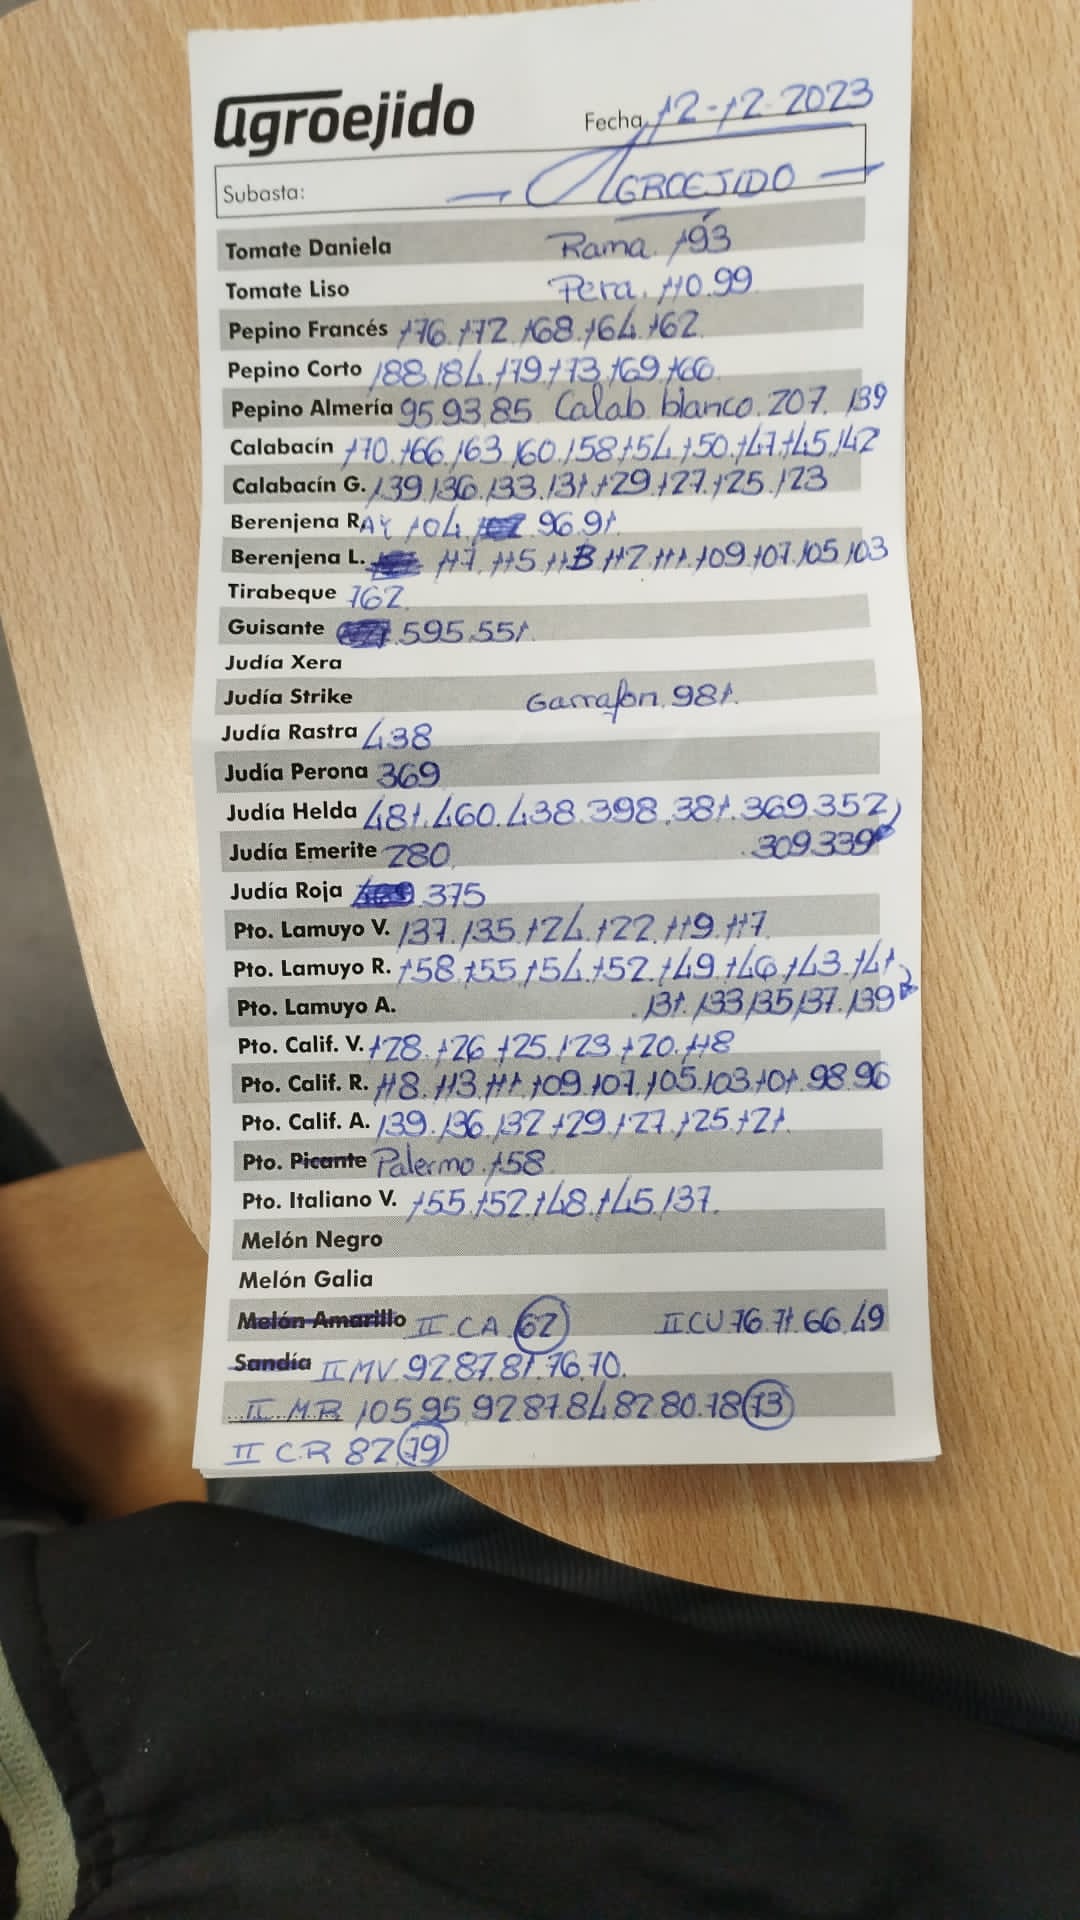 agroejido
Fecha 12-12-2023
Subasta: AGROEJIDO
Tomate Daniela Rama. 193
Tomate Liso Pera. 110.99
Pepino Francés 176.172.168.164.162
Pepino Corto 188.184.179.173.169.166
Pepino Almería 95.93.85 Calab. blanco. 207. 139
Calabacín 170.166.163.160.158.154.150.147.145.142
Calabacín G. 139.136.133.131.129.127.125.123
Berenjena RAY 104. 96.91.
Berenjena L. 117.115.113.112.111.109.107.105.103
Tirabeque 762
Guisante .595.551.
Judía Xera
Judía Strike Garrafon. 981.
Judía Rastra 438
Judía Perona 369
Judía Helda 481.460.438.398.381.369.352
Judía Emerite 280 .309.339
Judía Roja .375
Pto. Lamuyo V. 137.135.124.122.119.117.
Pto. Lamuyo R. 158.155.154.152.149.146.143.141
Pto. Lamuyo A. .131.133.135.137.139
Pto. Calif. V. 128.126.125.123.120.118
Pto. Calif. R. 118.113.111.109.107.105.103.101.98.96
Pto. Calif. A. 139.136.132.129.127.125.121.
Pto. Picante Palermo.158
Pto. Italiano V. 155.152.148.145.137.
Melón Negro
Melón Galia
Melón Amarillo II CA 62 II CU 76.71.66.49
Sandía II MV. 92.87.81.76.70.
II MR 105.95.92.87.84.82.80.78.73
II CR 82.79